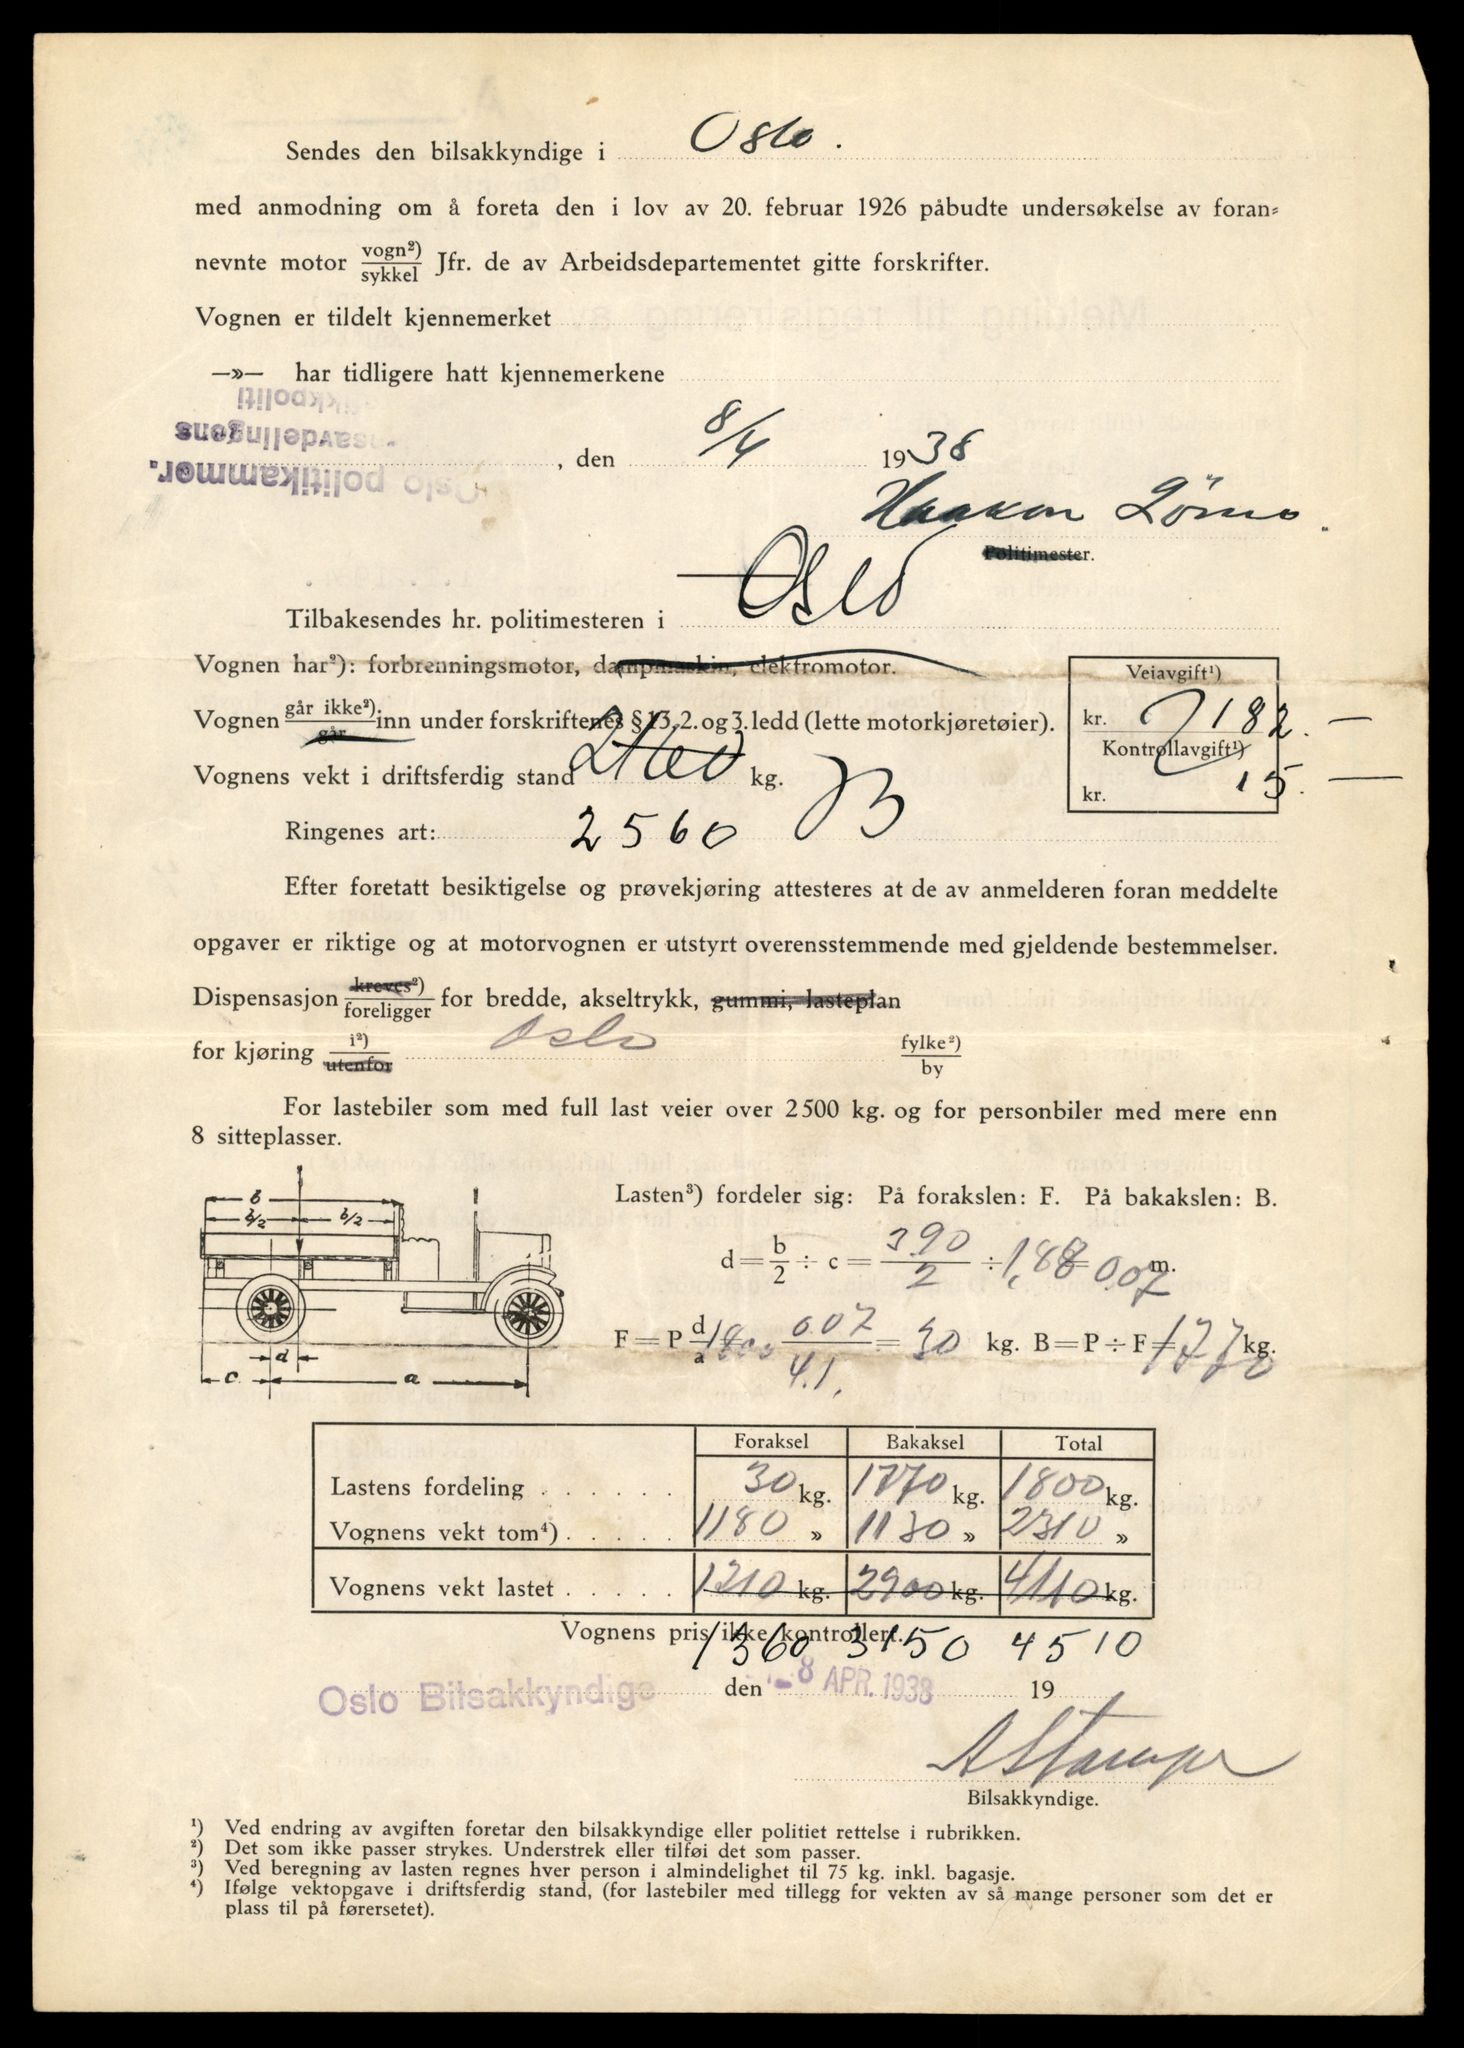 Sendes den bilsakkyndige i Oslo.
med anmodning om å foreta den i lov av 20. februar 1926 påbudte undersøkelse av foran=
nevnte motor vogn²) / sykkel Jfr. de av Arbeidsdepartementet gitte forskrifter.
Vognen er tildelt kjennemerket
—»— har tidligere hatt kjennemerkene
Oslo politikammer.
, den 8/4 1938
Haakon
Politimester.
Tilbakesendes hr. politimesteren i Oslo
Vognen har²): forbrenningsmotor, dampmaskin, elektromotor.
Veiavgift¹)
Vognen går ikke²) / går inn under forskriftenes § 13, 2. og 3. ledd (lette motorkjøretøier).
kr. 182. —
Kontrollavgift¹)
kr. 15. —
Vognens vekt i driftsferdig stand kg.
Ringenes art: 2560 B
Efter foretatt besiktigelse og prøvekjøring attesteres at de av anmelderen foran meddelte
opgaver er riktige og at motorvognen er utstyrt overensstemmende med gjeldende bestemmelser.
Dispensasjon kreves²) / foreligger for bredde, akseltrykk, gummi, lasteplan
for kjøring i²) / utenfor Oslo fylke²) / by
For lastebiler som med full last veier over 2500 kg. og for personbiler med mere enn
8 sitteplasser.
b
b/2 b/2
c d a
Lasten³) fordeler sig: På forakslen: F. På bakakslen: B.
d = b/2 ÷ c = 3.90/2 ÷ 1,88 = 0.07 m.
F = P d/a 1800 0.07/4.1. = 30 kg. B = P ÷ F = 1770 kg.
Foraksel Bakaksel Total
Lastens fordeling . . . . . . 30 kg. 1770 kg. 1800 kg.
Vognens vekt tom⁴) . . . . . 1180 » 1130 » 2310 »
Vognens vekt lastet . . . . . 1210 kg. 2900 kg. 4110 kg.
Vognens pris ikke kontrollert.
1360 3150 4510
Oslo Bilsakkyndige den -8 APR. 1938 19
Bilsakkyndige.
¹) Ved endring av avgiften foretar den bilsakkyndige eller politiet rettelse i rubrikken.
²) Det som ikke passer strykes. Understrek eller tilføi det som passer.
³) Ved beregning av lasten regnes hver person i almindelighet til 75 kg. inkl. bagasje.
⁴) Ifølge vektopgave i driftsferdig stand, (for lastebiler med tillegg for vekten av så mange personer som det er
plass til på førersetet).